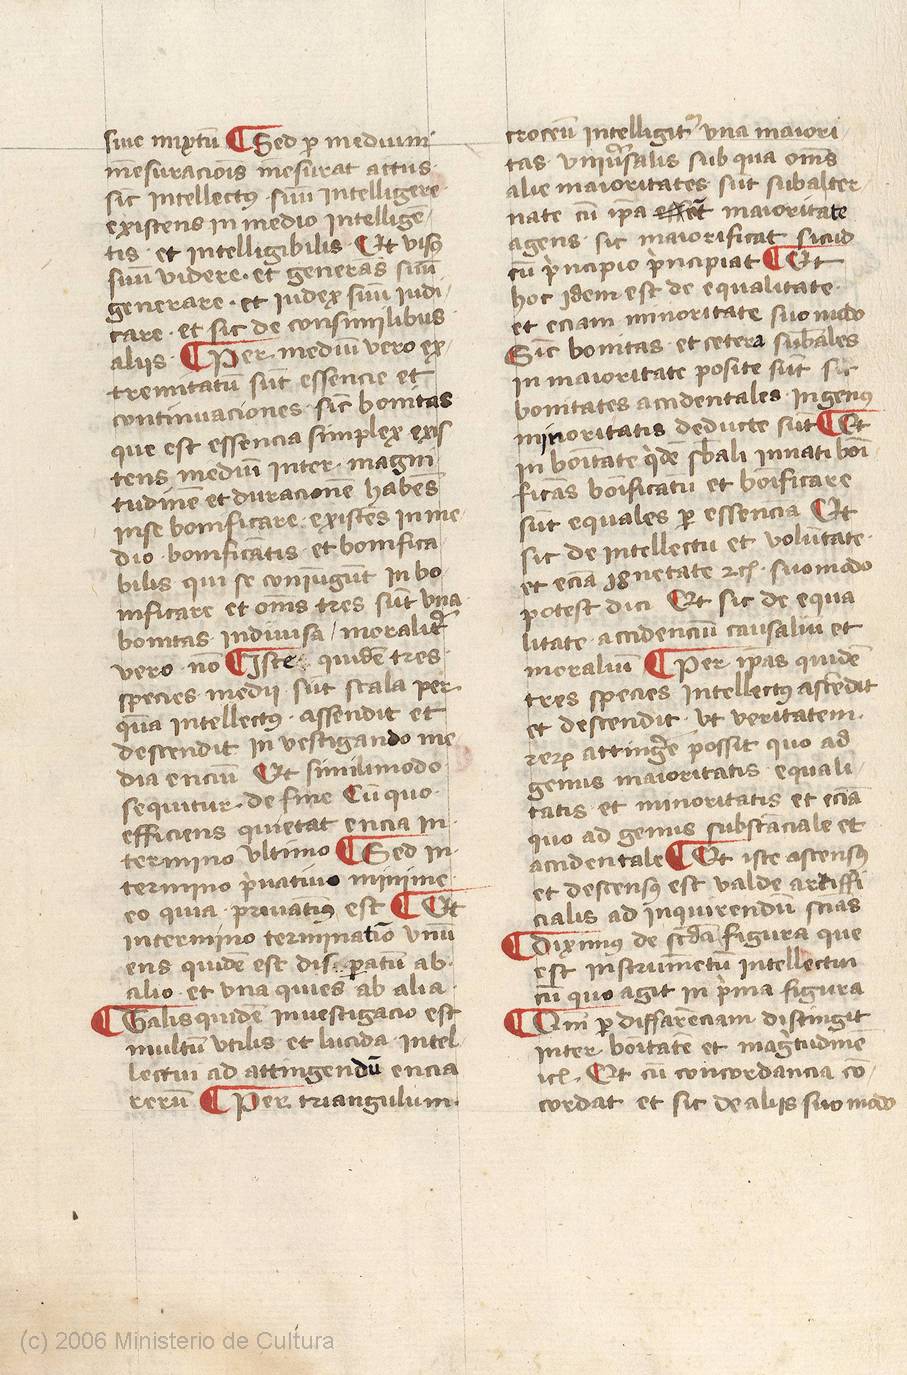 siue mixtū ¶ Sed ꝑ medium
mēsuraciois mēsurat actus
sic̄ Intellectꝯ suū Intelligere
existens in medio Intelligē
tis · et intelligibilis Et visꝯ
suū videre · et generās suū
generare · et iudex suū iudi
care · et sic de consimilibus
aliis · ¶ Per mediū vero ex
tremitatū sūt essencie et
continuaciones · sic̄ bonitas
que est essencia simplex exis
tens mediū inter magni
tudinē et duracionē habēs
inse bonificare · existēs in me
dio · bonificātis · et bonifica
bilis qui se coniūgūt in bo
nificare et om̄s tres sūt vna
bonitas indiuisa / moralit̄
vero nō ¶ Iste quidē tres
species medii sūt scala per
quā intellectꝯ · assendit et
descendit in vestigando me
dia enciū Et similimodo
sequitur · de fine Cū quo
efficiens quietat encia in
termino vltimo ¶ Sed in
termino p̄uatiuo minime
eo quia priuatiuꝯ est ¶ Et
in termino terminatio͞ vnū
ens quidē est dis ꝑatū ab
alio · et vna quies ab alia
¶ Talis quidē inuestigacio est
multū vtilis et lucida intel
lectui ad attingendū encia
rerū ¶ Per triangulum
croceū Intelligit᷒ vna maiori
tas vniūsalis sub qua om̄s
alie maioritates sūt subalter
nate cū ip̄a maioritate
agens sic maiorificat sicud
cū p̄ncipio p̄ncipiat ¶ Et
hoc idem est de equalitate
et eciam minoritate suo modo
Sic̄ bonitas et cetera sub̄ales
in maioritate posite sūt sic
bonitates accidentales in genꝯ
minoritatis deducte sūt ¶ Et
in boītate q̇dē sb̄ali innati boī
ficās boīficatū et boīficare
sūt equales ꝑ essencia Et
sic de intellectu et volūtate
et eciā idēnetate ⁊cꝫ suo modo
potest dici Et sic de equa
litate accidenciū causaliū et
moraliū ¶ Per ip̄as quidē
tres species Intellectꝯ ascēdit
et descendit · vt veritatem
rerꝝ atting̃e possit quo ad
genus maioritatis equali
tatis et minoritatis et eciā
quo ad genus substāciale et
accidentale ¶ Et iste ascensꝯ
et descensꝯ est valde artiffi
cialis ad inquirendū scīas
¶ Diximꝯ de sc̄da figura que
est instrumētū intellectui
cū quo agit in p̄ma figura
¶ Qm̄ ꝑ differēciam distingit
inter boītate et magtudinē
⁊cꝫ · Et cū concordancia cō
cordat et sic de aliis suo modo
(c) 2006 Ministerio de Cultura